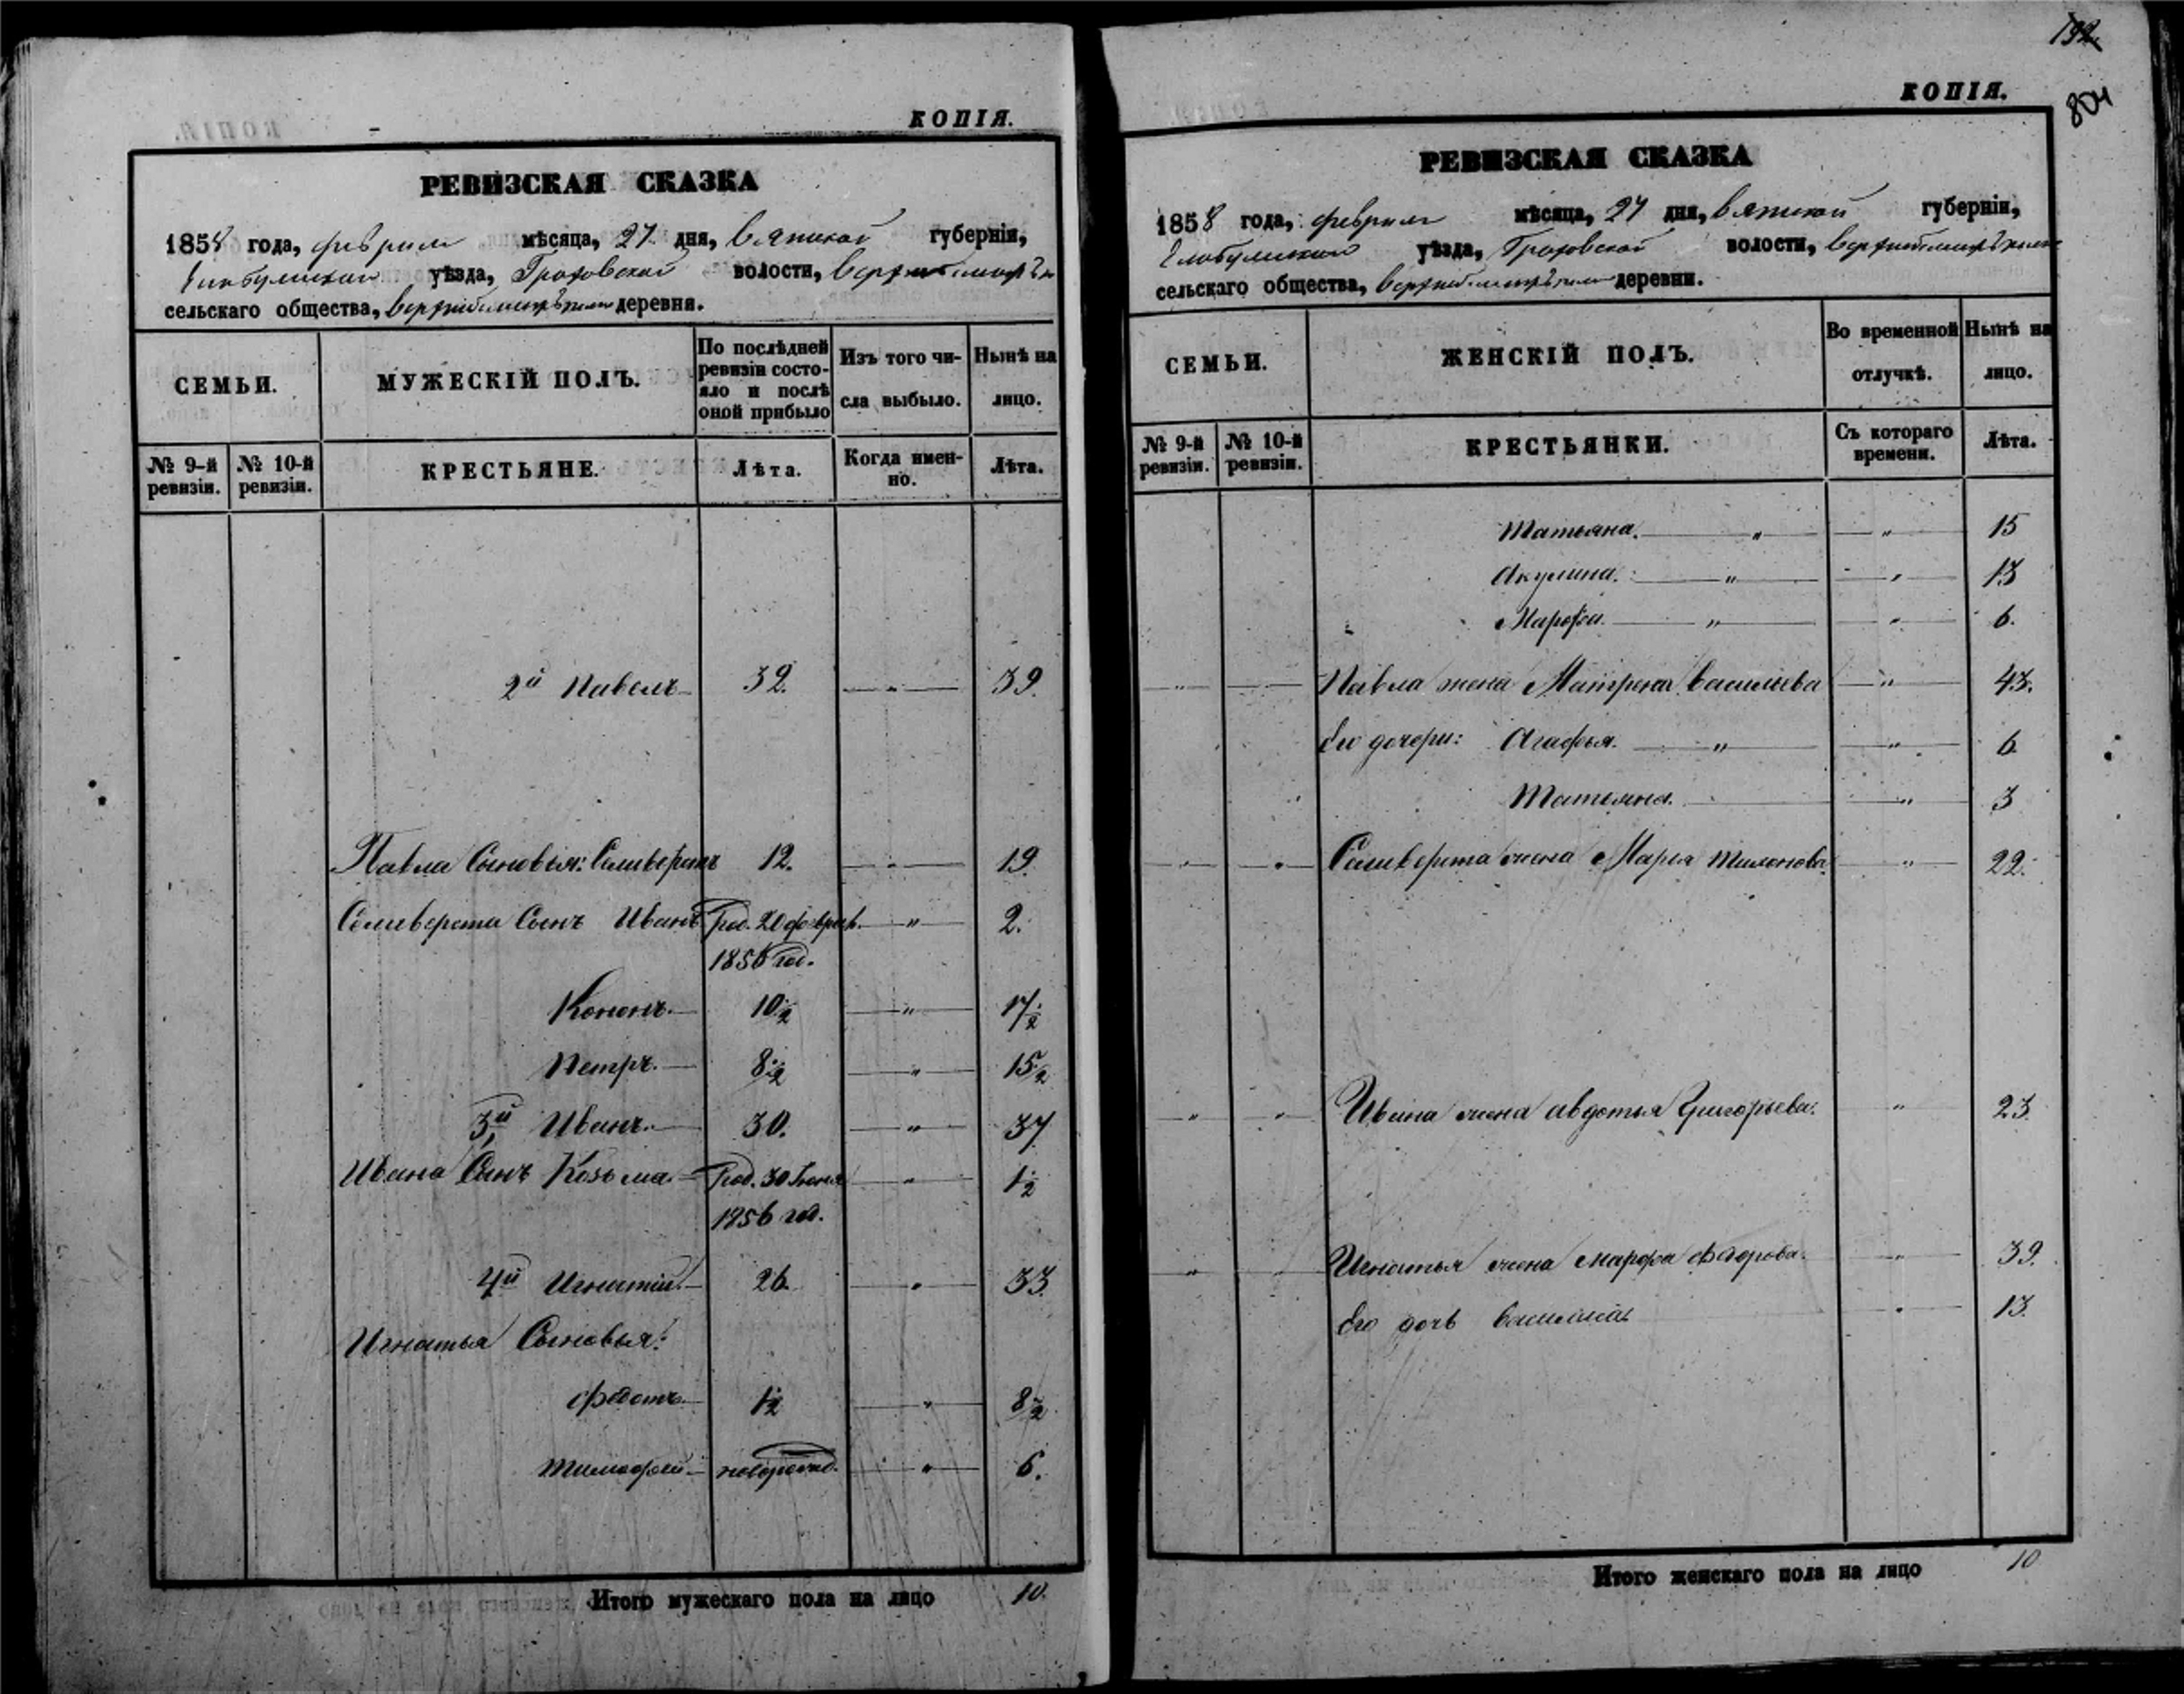 КОПІЯ.
РЕВИЗСКАЯ СКАЗКА
1858 года, февраля мѣсяца, 27 дня, Вятской губерніи,
Елабужскаго уѣзда, Граховской волости,
сельскаго общества, деревня.
СЕМЬИ.
МУЖЕСКІЙ ПОЛЪ.
По послѣдней ревизіи состояло и послѣ оной прибыло
Изъ того числа выбыло.
Нынѣ на лицо.
№ 9-й ревизіи.
№ 10-й ревизіи.
КРЕСТЬЯНЕ.
Лѣта.
Когда именно.
Лѣта.
2й Павелъ 32. " 39.
Павла Сыновья: Селиверстъ 12. " 19.
Селиверста Сынъ Иванъ Род. 20 февр. " 2.
1856 год.
Кононъ. 10½ " 17½
Петръ. 8½ " 15½
3й Иванъ. 30. " 37
Ивана Сынъ Козьма. Род. 30 Іюня " 1½
1856 год.
4й Игнатій. 26. " 33.
Игнатья Сыновья:
Федотъ 1½ " 8½
Тимофей новорожд. " 6.
Итого мужескаго пола на лицо 10.
192
804
КОПІЯ.
РЕВИЗСКАЯ СКАЗКА
1858 года, февраля мѣсяца, 27 дня, Вятской губерніи,
Елабужскаго уѣзда, Граховской волости,
сельскаго общества, деревни.
СЕМЬИ.
ЖЕНСКІЙ ПОЛЪ.
Во временной отлучкѣ.
Нынѣ на лицо.
№ 9-й ревизіи.
№ 10-й ревизіи.
КРЕСТЬЯНКИ.
Съ котораго времени.
Лѣта.
Татьяна. " " 15
Акулина. " " 13
Марфа. " " 6.
" Павла жена Матрена Васильева " 43.
Его дочери: Агафья. " " 6
Татьяна. " 3
" " Селиверста жена Марья Тихонова. " 22.
" " Ивана жена Авдотья Григорьева. " 23.
" " Игнатья жена Марфа Федорова. " 39.
Его дочь Василиса " 13.
Итого женскаго пола на лицо 10